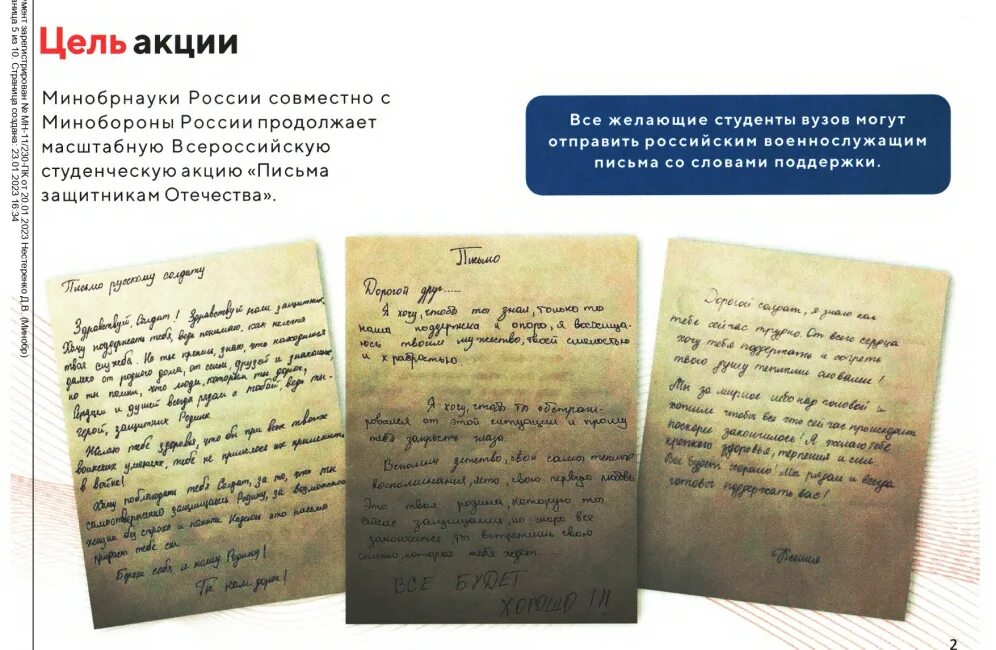 Цель акции
Минобрнауки России совместно с
Минобороны России продолжает
масштабную Всероссийскую
студенческую акцию «Письма
защитникам Отечества».
Все желающие студенты вузов могут
отправить российским военнослужащим
письма со словами поддержки.
Письмо русскому солдату
Здравствуй, Солдат! Здравствуй наш защитник.
Хочу поддержать тебя, ведь понимаю, как нелегка
твоя служба. Но ты терпи, знаю, что находишься
далеко от родного дома, от семьи, друзей и знакомых,
но ты помни, что люди, которым ты дорог,
Сердцем и душей всегда рядом с тобой, ведь ты-
герой, защитник Родины.
Желаю тебе здоровья, что бы при всех твоих
воинских умениях, тебе не пришлось их применять
в войне!
Хочу поблагодарить тебя Солдат, за то, что ты
самоотверженно защищаешь Родину, за возможность
жизни без страха и паники. Надеюсь это письмо
придаст тебе сил.
Береги себя и нашу Родину!
Ты нам дорог!
Письмо
Дорогой друг.....
Я хочу, чтоб ты знал, только ты
наша поддержка и опора, я восхища-
юсь твоим мужеством, твоей смелостью
и храбрастью.
Я хочу, чтоб ты абстраги-
ровался от этой ситуации и прошу
тебя закрыть глаза.
Вспомни детство, свои самые теплые
воспоминания, лето, свою первую любовь
Это твоя родина, которую ты
сейчас защищаешь, но скоро все
закончится ты встретишь свою
семью, которая тебя ждет...
ВСЕ БУДЕТ
ХОРОШО !!!
Дорогой солдат, я знаю как
тебе сейчас трудно. От всего сердца
хочу тебя поддержать и согреть
твою душу теплыми словами!
Мы за мирное небо над головой и
хотим чтобы все это сейчас происходит
поскорее закончилось! Я желаю тебе
крепкого здоровья, терпения и сил
Все будет хорошо! Мы рядом и всегда
готовы поддержать вас!
2
умент зарегистрирован № МН-11/230-ПК от 20.01.2023 Нестеренко Д.В. (Минобр)
аница 5 из 10. Страница создана: 23.01.2023 16:34